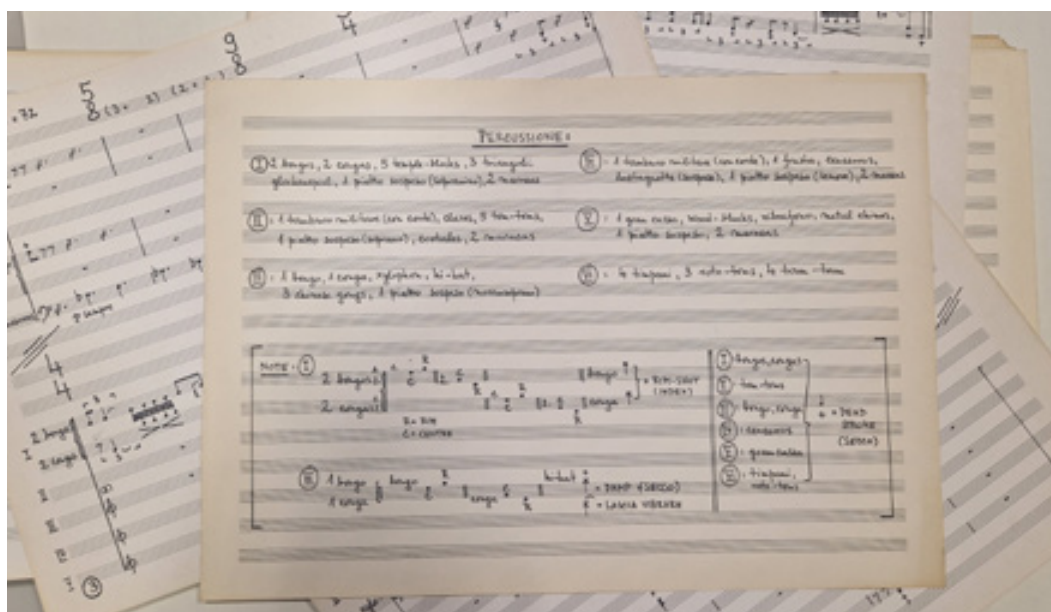 .72
5
8
(3+ 2) (2+
9
8
4
PERCUSSIONE:
I 2 bongos, 2 congas, 5 temple-blocks, 3 triangoli
glockenspiel, 1 piatto sospeso (sopranino), 2 maracas
II: 1 tamburo militare (con corde), claves, 3 tom-toms,
1 piatto sospeso (soprano), crotales, 2 maracas
III: 1 bongo, 1 conga, xylophon, hi-hat,
3 chinese gongs, 1 piatto sospeso (mezzosoprano)
IV: 1 tamburo militare (con corde), 1 frusta, cencerros,
1 piatto sospeso (tenore), 2 maracas
V: 1 gran cassa, wood-blocks, vibrafono, metal chimes,
1 piatto sospeso, 2 maracas
VI: 4 timpani, 3 roto-toms, 4 tam-tam
NOTE: I
2 bongos
2 congas
R
C
bongo
conga
= RIM-SHOT
R = RIM
C = CENTRE
III 1 bongo
1 conga
bongo
C
R
conga
C
R
hi-hat
= DAMP (SECCO)
= LASCIA VIBRARE
I: bongos, congas
II: tom-toms
III: bongo, conga
IV: cencerros
V: gran cassa
VI: timpani,
roto-toms
= DEAD
STROKE
(SECCO)
4
4
I 2 bongos
2 congas
II
III
IV
V
3